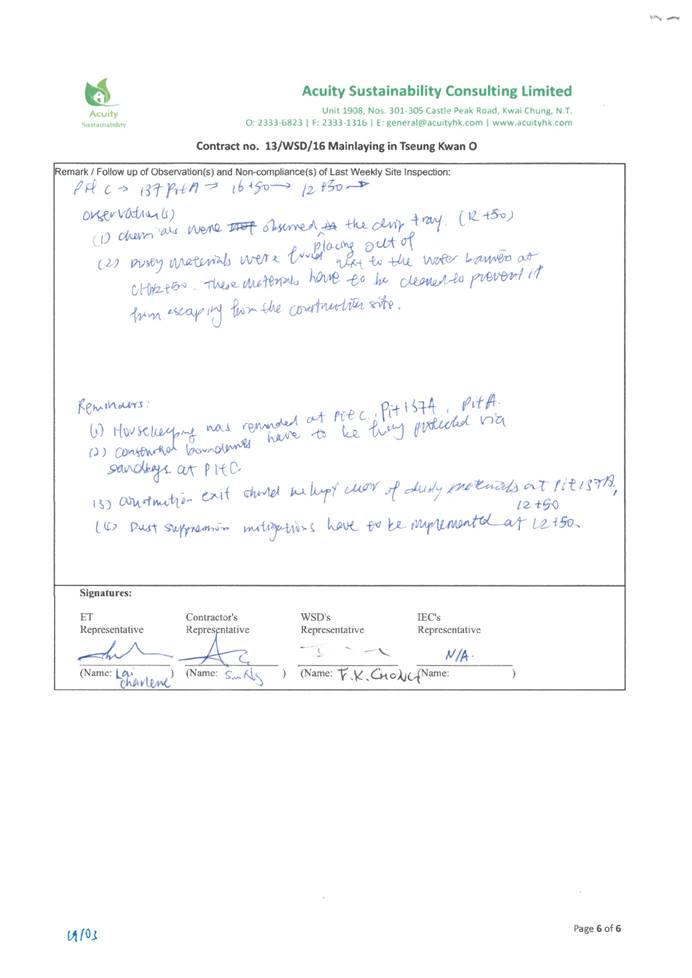 Acuity
Sustainability
Acuity Sustainability Consulting Limited
Unit 1908, Nos. 301-305 Castle Peak Road, Kwai Chung, N.T.
O: 2333-6823 | F: 2333-1316 | E: general@acuityhk.com | www.acuityhk.com
Contract no. 13/WSD/16 Mainlaying in Tseung Kwan O
Remark / Follow up of Observation(s) and Non-compliance(s) of Last Weekly Site Inspection:
Pit C → 137 Pit A → 16+50 → 12+50
Observation(s)
(1) Chemicals were observed the drip tray. (12+50)
(2) Dusty materials were found placing out of next to the water barriers at
CH12+50. These materials have to be cleaned to prevent it
from escaping from the construction site.
Reminders:
(1) Housekeeping was reminded at Pit C, Pit 137A, Pit A.
(2) Construction boundaries have to be fully protected via
sandbags at Pit C.
(3) Construction exit should be kept clear of dusty materials at Pit 137A,
12+50
(4) Dust suppression mitigations have to be implemented at 12+50.
Signatures:
ET Representative
Contractor's Representative
WSD's Representative
IEC's Representative
N/A.
(Name: Lai Charlene)
(Name: )
(Name: T.K. CHONG
(Name: )
19/03
Page 6 of 6